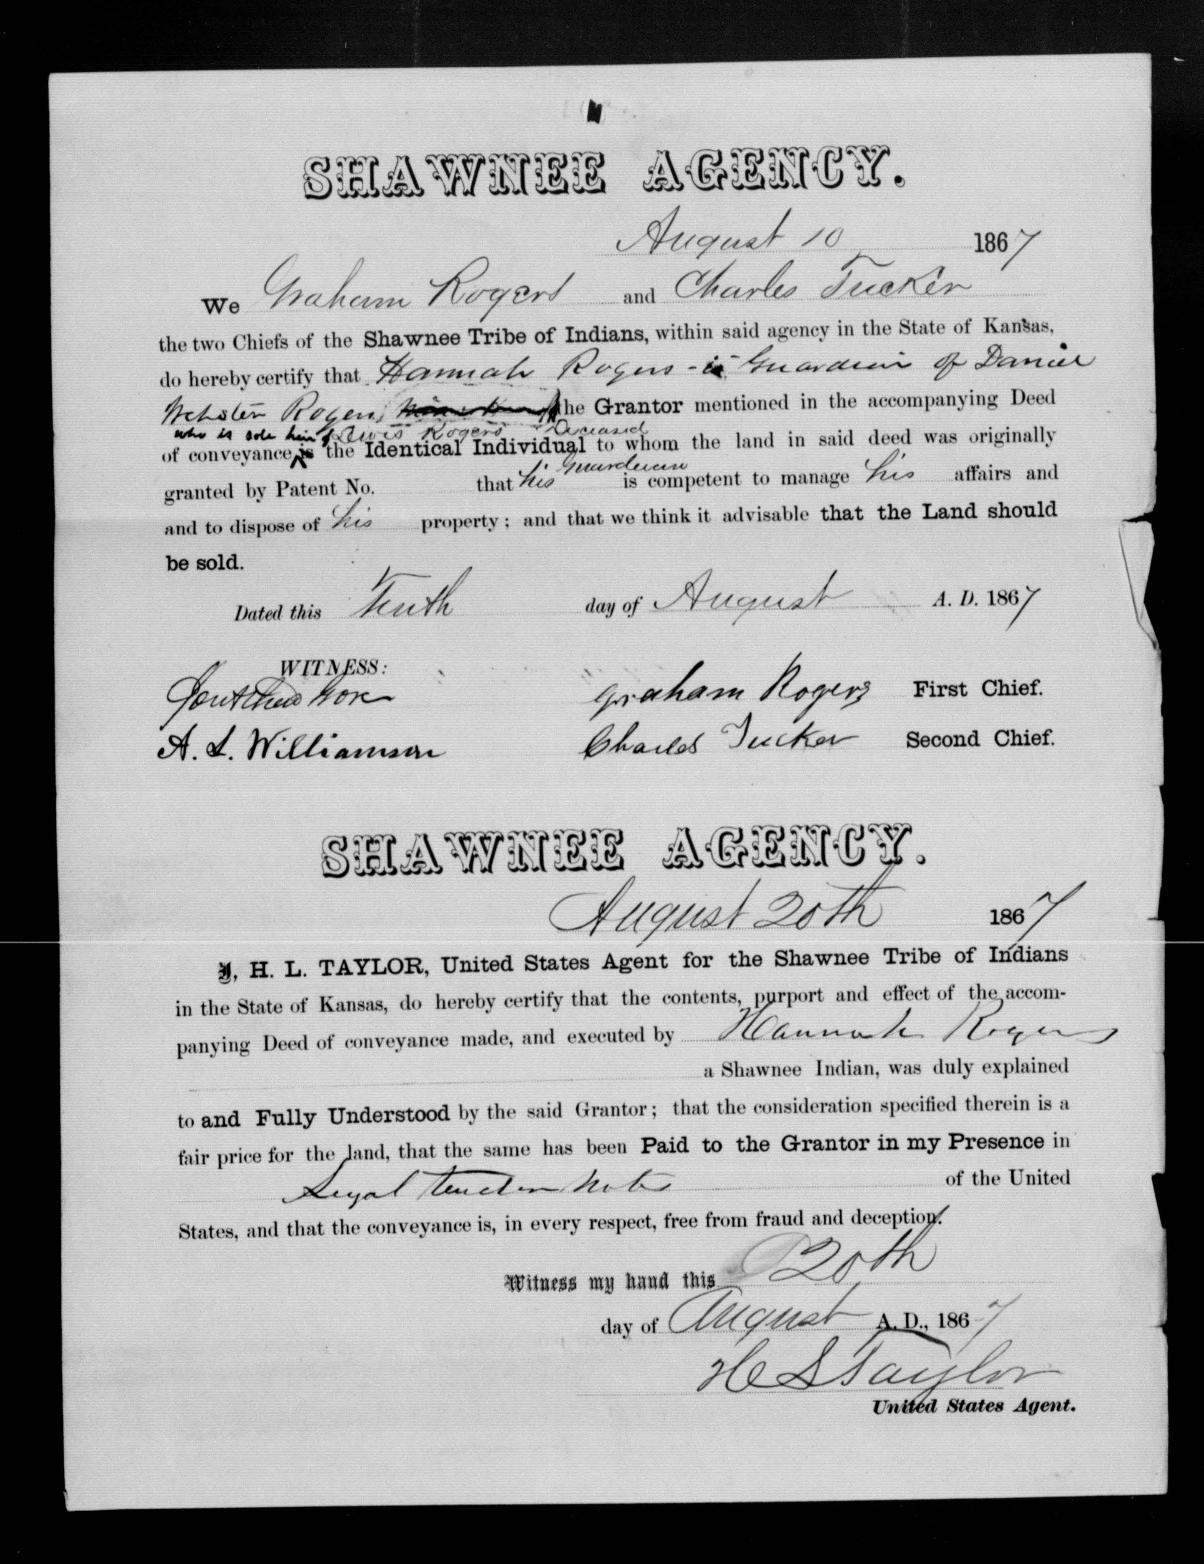 SHAWNEE AGENCY.
August 10 1867
We Graham Rogers and Charles Tucker
the two Chiefs of the Shawnee Tribe of Indians, within said agency in the State of Kansas,
do hereby certify that Hannah Rogers - is Guardian of Daniel
Webster Rogers the Grantor mentioned in the accompanying Deed
who is sole heir of Lewis Rogers Deceased
of conveyance, is the Identical Individual to whom the land in said deed was originally
guardian
granted by Patent No. that his is competent to manage his affairs and
and to dispose of his property; and that we think it advisable that the Land should
be sold.
Dated this Tenth day of August A. D. 1867
WITNESS:
Graham Rogers First Chief.
A. S. Williamson Charles Tucker Second Chief.
SHAWNEE AGENCY.
August 20th 1867
I, H. L. TAYLOR, United States Agent for the Shawnee Tribe of Indians
in the State of Kansas, do hereby certify that the contents, purport and effect of the accom-
panying Deed of conveyance made, and executed by Hannah Rogers
a Shawnee Indian, was duly explained
to and Fully Understood by the said Grantor; that the consideration specified therein is a
fair price for the land, that the same has been Paid to the Grantor in my Presence in
Legal tender notes of the United
States, and that the conveyance is, in every respect, free from fraud and deception.
Witness my hand this 20th
day of August A. D., 1867
H L Taylor
United States Agent.